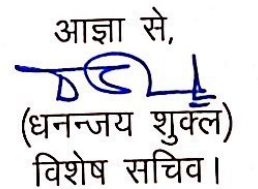 आज्ञा से,
(धनन्जय शुक्ल)
विशेष सचिव।